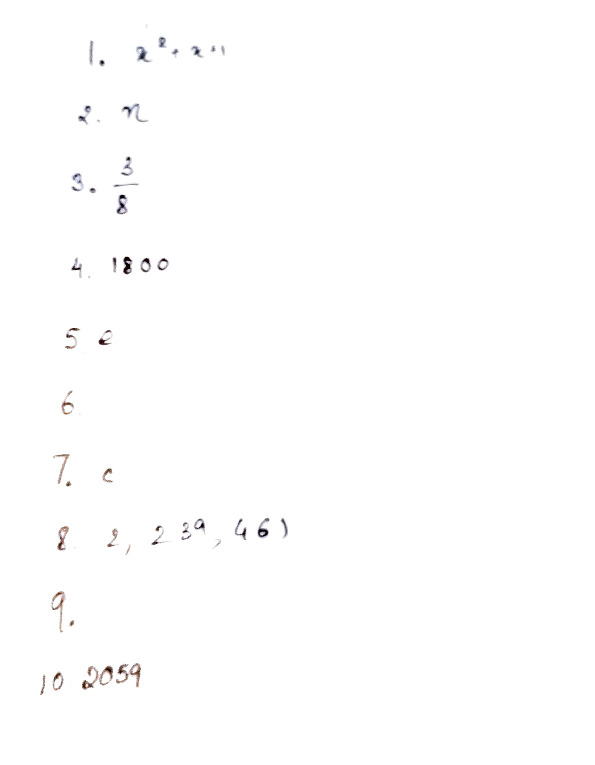 1. x² + x + 1
2. n
3. 3/8
4. 1800
5 e
6.
7. c
8. 2, 239, 461
9.
10 2059